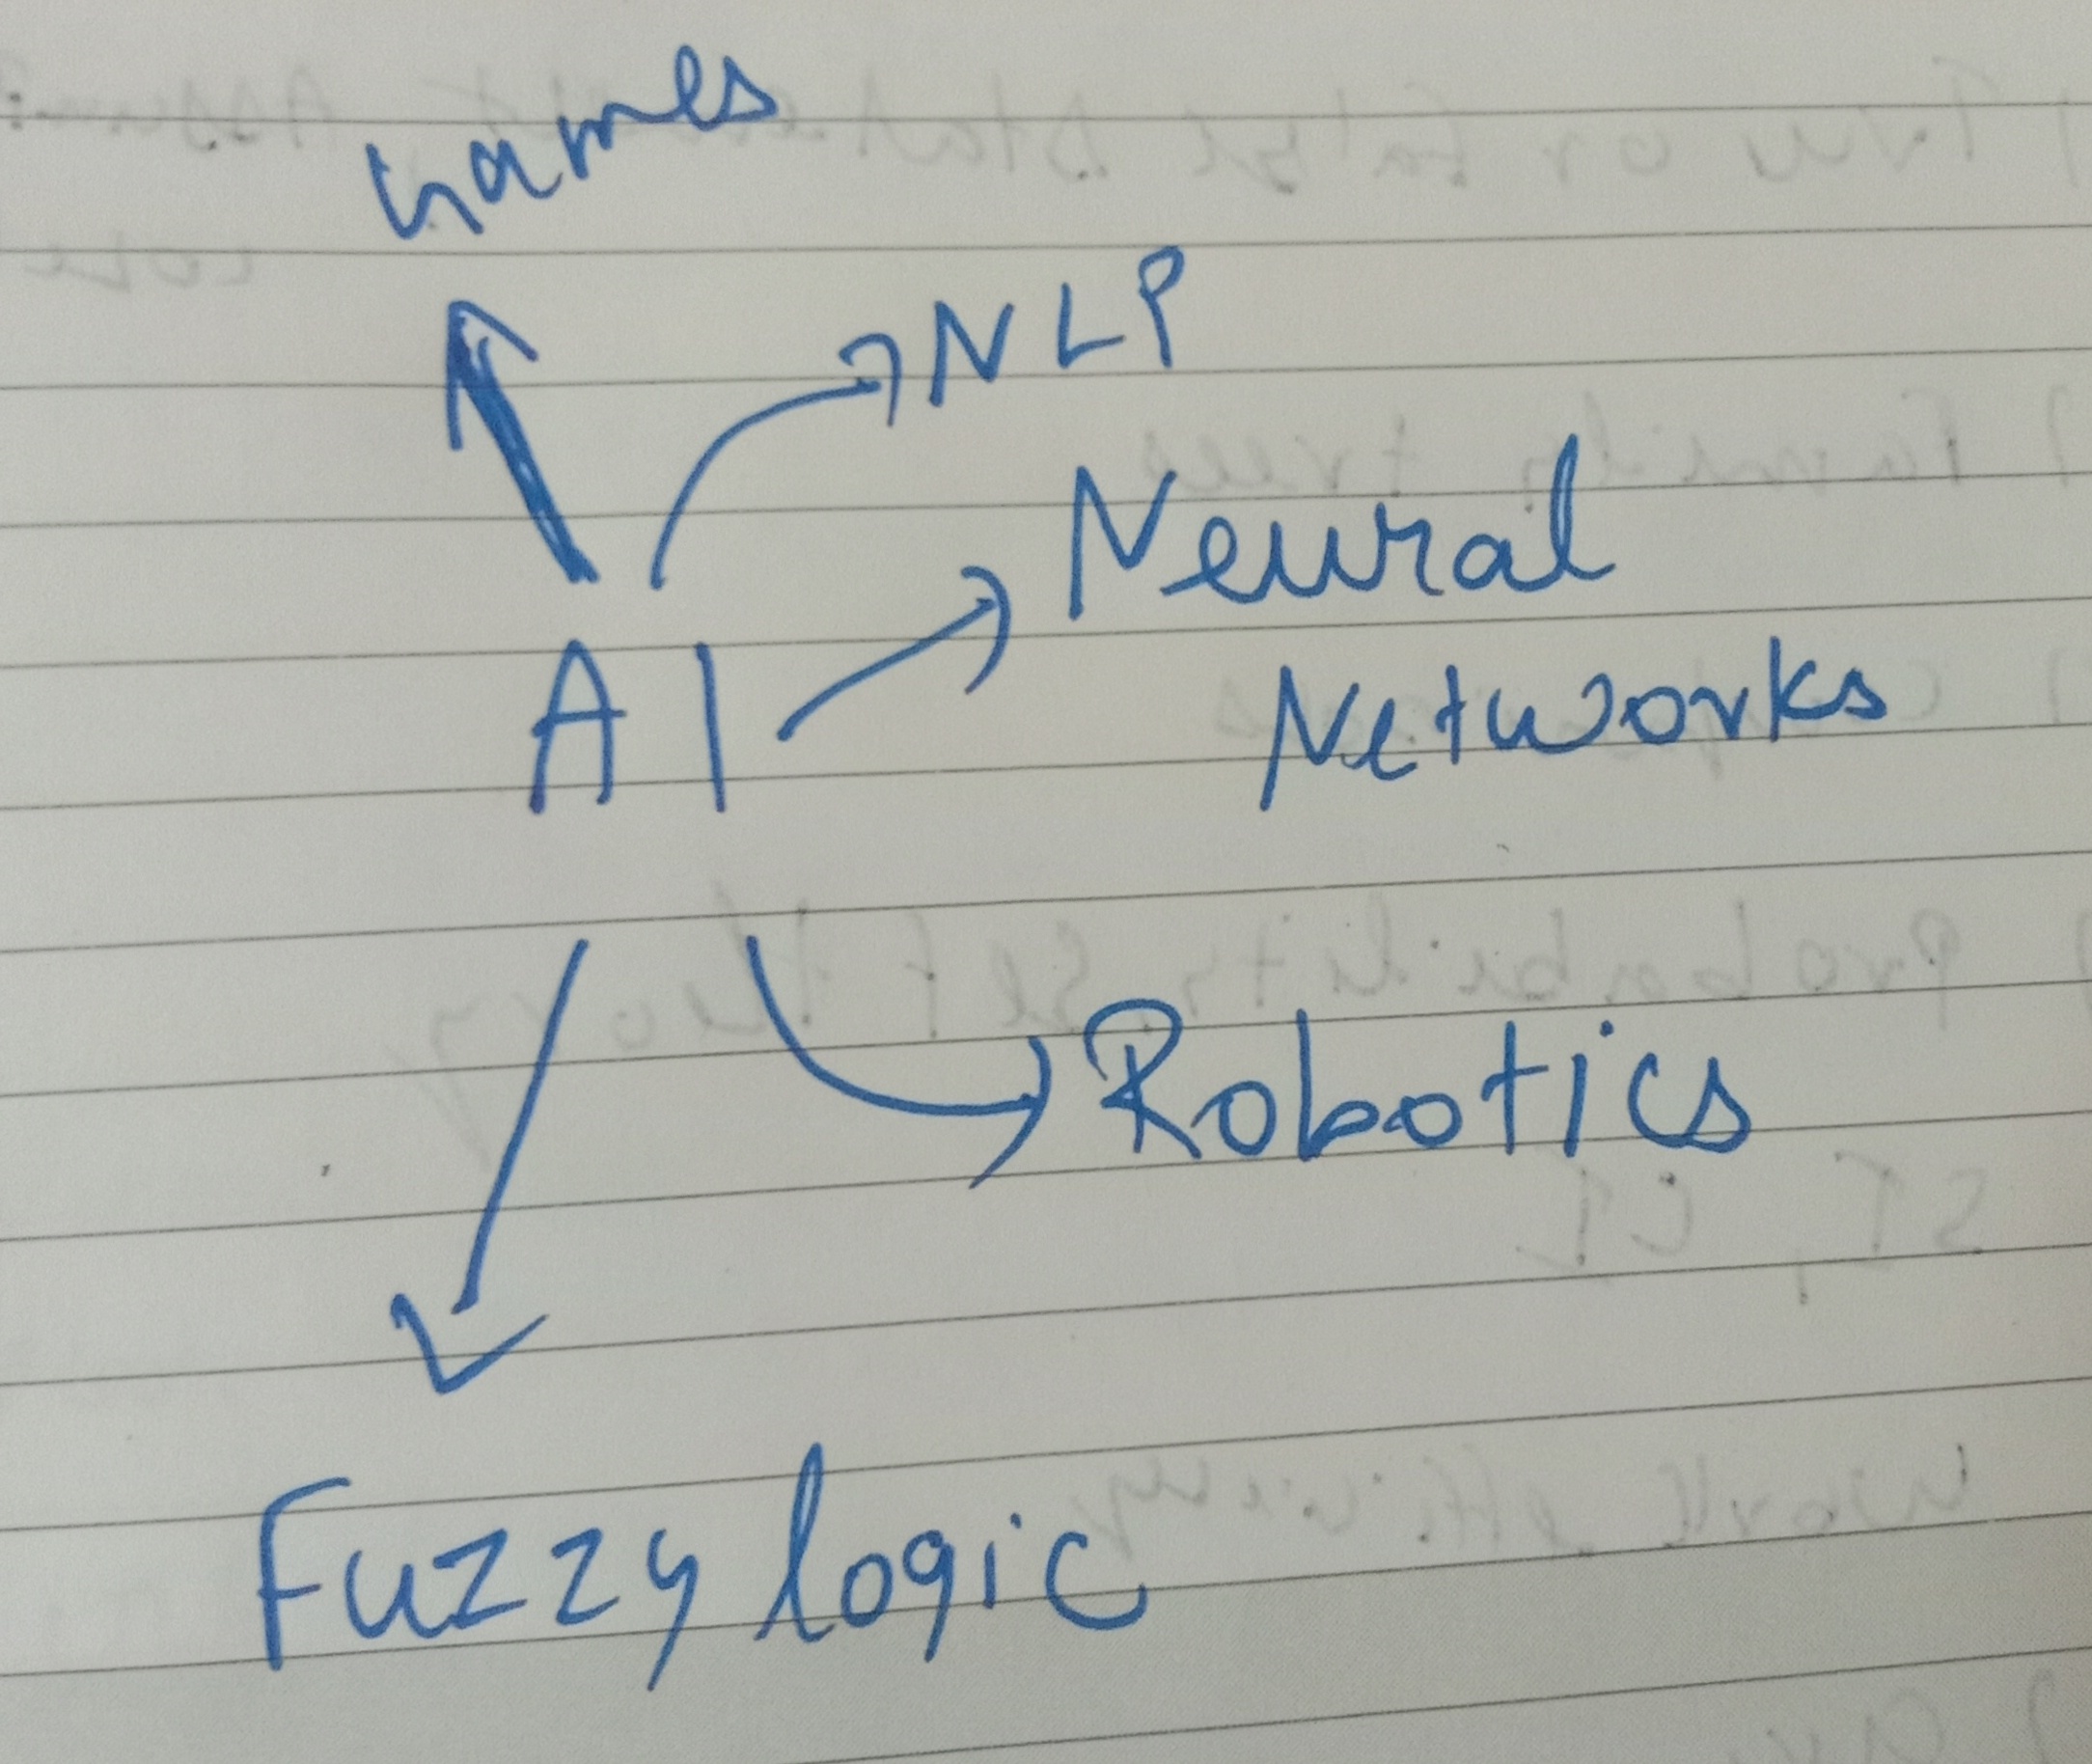 Games
NLP
Neural
Networks
AI
Robotics
Fuzzy logic